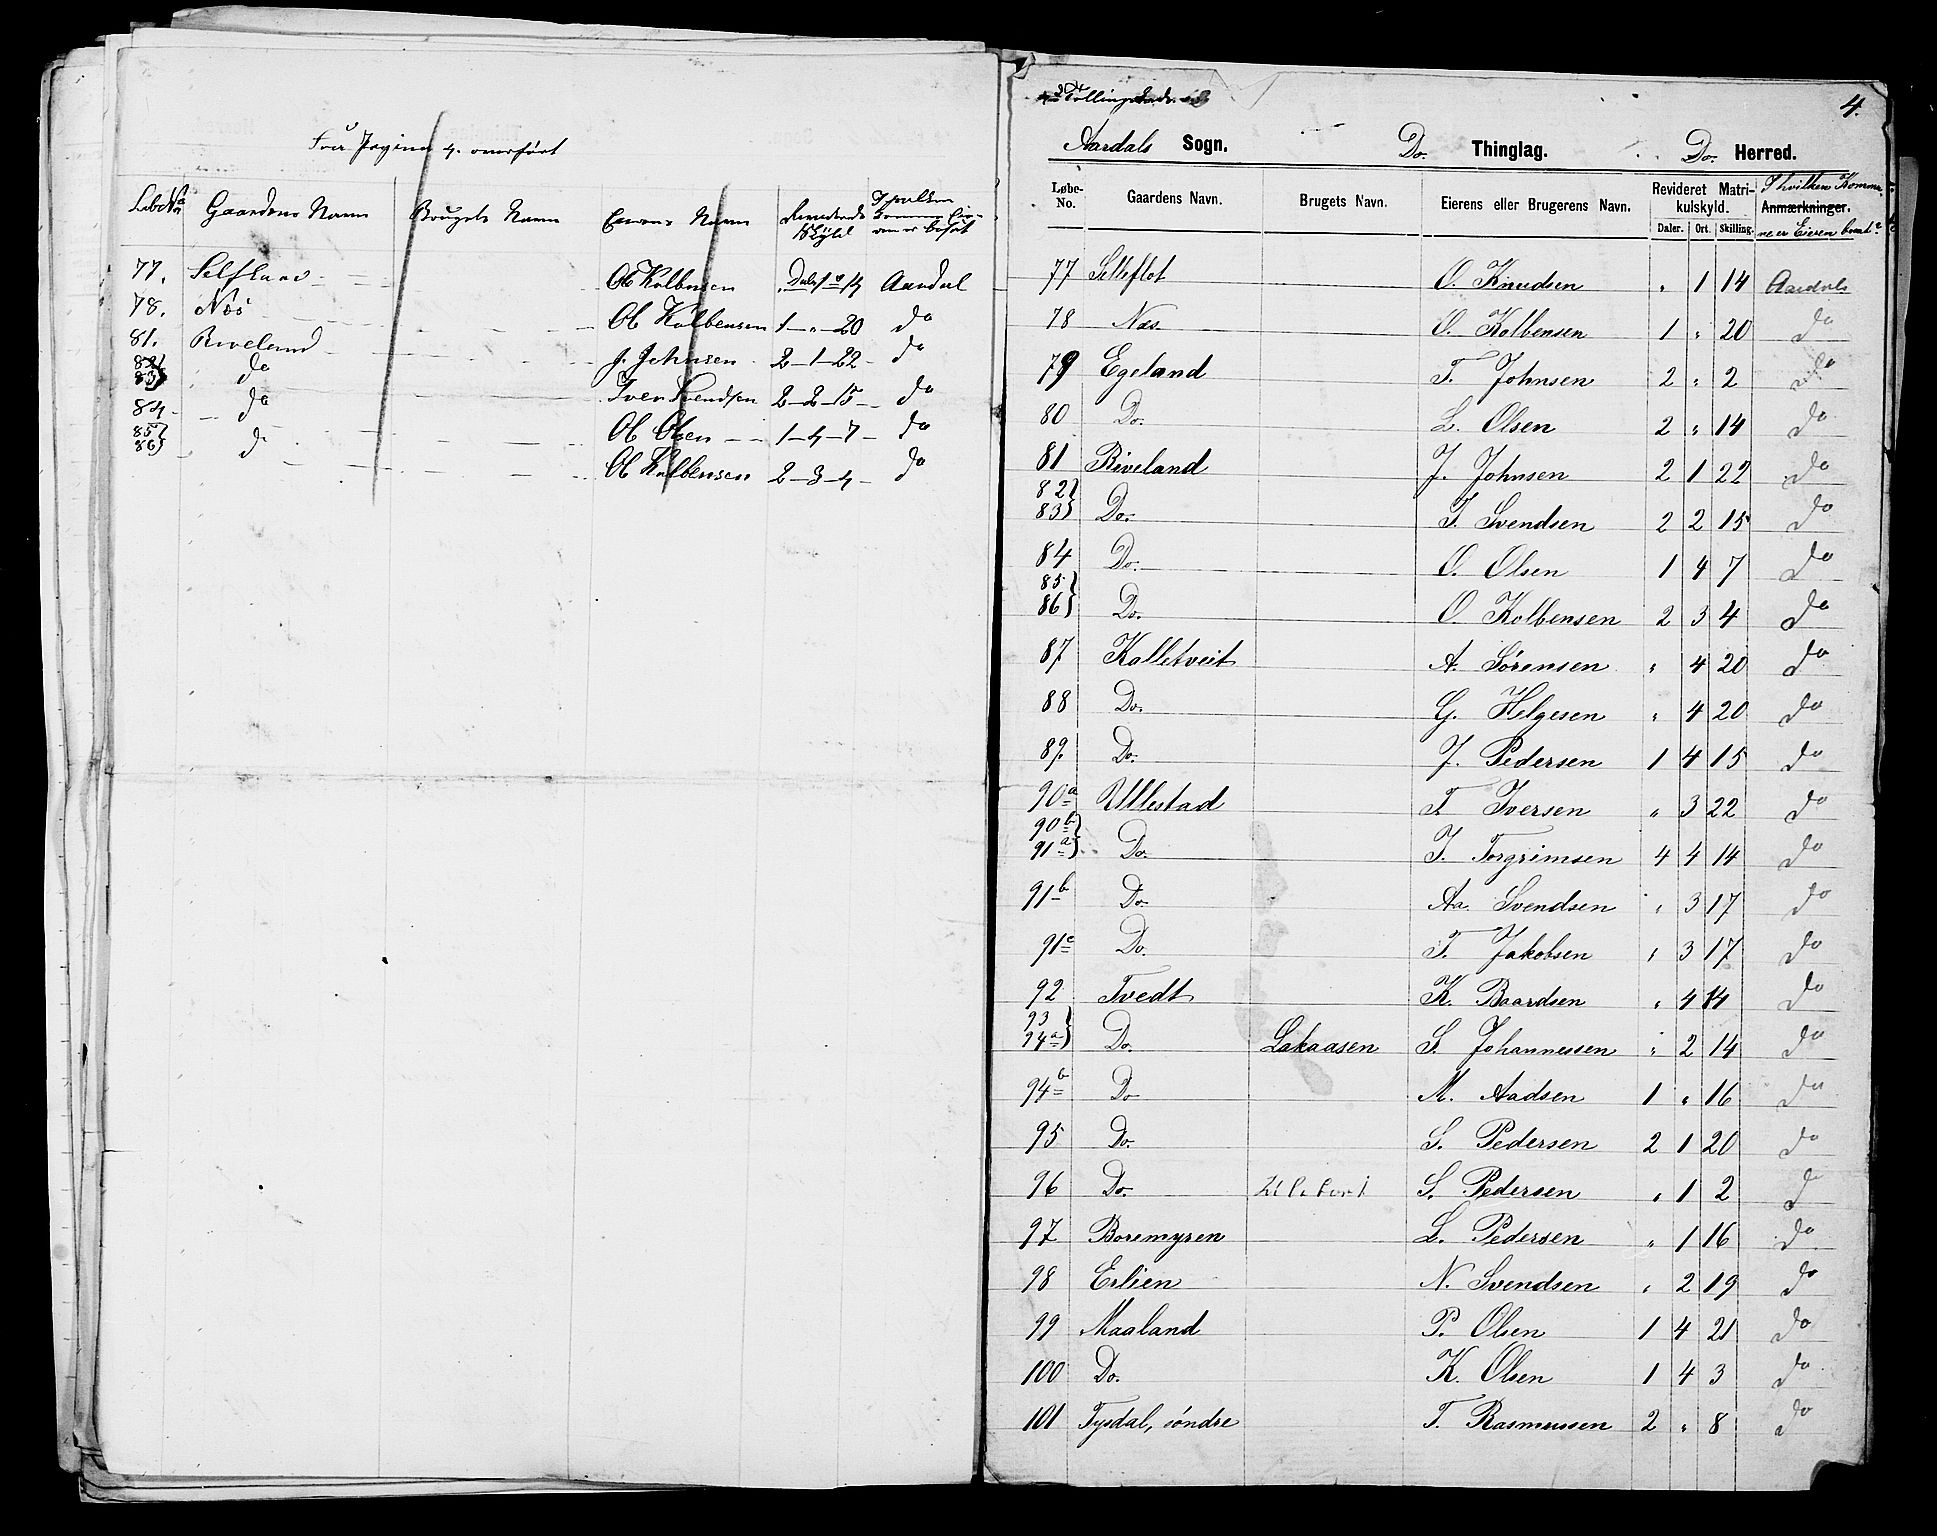 Fra Pagina 4. overført
Løbe No Gaardens Navn Brugets Navn Eierens Navn Revideret Skyld
77. Ole Kolbensen Aardal
78. Næs Ole Kolbensen 1 - " - 20 do
81. Riveland J. Johnsen 2 - 1 - 22 do
82
83 do Iver Svendsen 2 - 2 - 15 do
84 do Ole Olsen 1 - 4 - 7 do
85
86 d Ole Kolbensen 2 - 3 - 4 do
4.
Aardals Sogn. Do. Thinglag. Do. Herred.
Løbe-No. Gaardens Navn. Brugets Navn. Eierens eller Brugerens Navn. Revideret Matrikulskyld. I hvilken Kommune er Eieren bosat?
Anmærkninger.
Daler. Ort. Skilling.
77 Selleflot O. Knudsen " 1 14 Aardals
78 Næs O. Kolbensen 1 " 20 do
79 Egeland T. Johnsen 2 " 2 do
80 Do. L. Olsen 2 " 14 do
81 Riveland J. Johnsen 2 1 22 do
82
83 Do. I. Svendsen 2 2 15 do
84 Do. O. Olsen 1 4 7 do
85
86 Do. O Kolbensen 2 3 4 do
87 Kalletveit A. Sørensen " 4 20 do
88 Do. G. Helgesen " 4 20 do
89. Do. J. Pedersen 1 4 15 do
90a Ullestad T. Iversen " 3 22 do
90b
91a Do. I. Torgrimsen 4 4 14 do
91b Do. Aa. Svendsen " 3 17 do
91c Do. T. Jakobsen " 3 17 do
92 Tvedt K. Baardsen " 4 14 do
93
94a Do. Lakaasen S. Johannessen " 2 14 do
94b Do M. Aadsen 1 " 16 do
95 Do. S. Pedersen 2 1 20 do
96 Do. S. Pedersen " 1 2 d
97 Boremyren L. Pedersen " 1 16 do
98 Erlien N. Svendsen " 2 19 do
99 Maaland P. Olsen 1 4 21 do
100 Do. K. Olsen 1 4 3 do
101 Tysdal, søndre T. Rasmussen 2 " 8 do